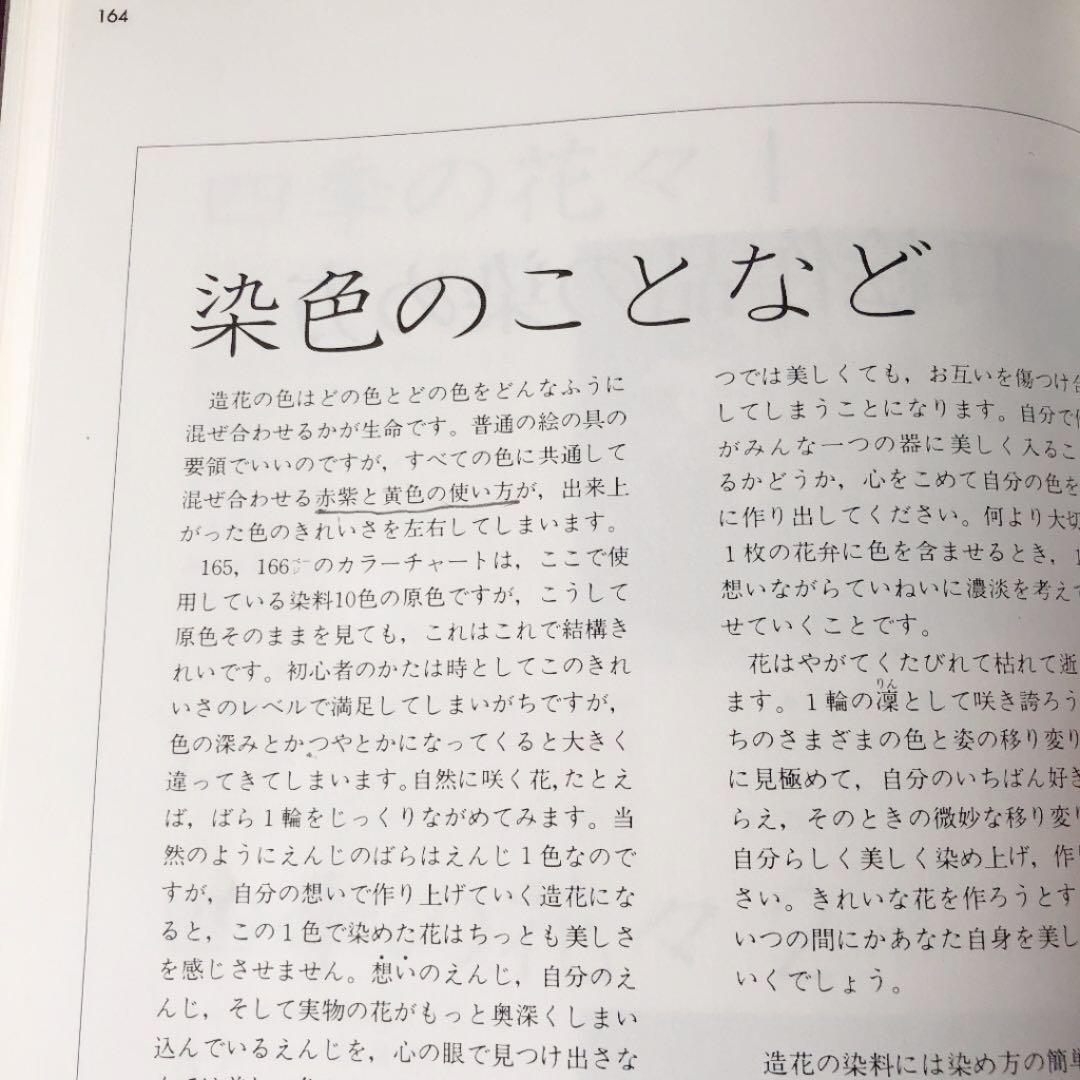 164
染色のことなど
造花の色はどの色とどの色をどんなふうに
混ぜ合わせるかが生命です。普通の絵の具の
要領でいいのですが，すべての色に共通して
混ぜ合わせる赤紫と黄色の使い方が，出来上
がった色のきれいさを左右してしまいます。
165，166㌻のカラーチャートは，ここで使
用している染料10色の原色ですが，こうして
原色そのままを見ても，これはこれで結構き
れいです。初心者のかたは時としてこのきれ
いさのレベルで満足してしまいがちですが，
色の深みとかつやとかになってくると大きく
違ってきてしまいます。自然に咲く花，たとえ
ば，ばら１輪をじっくりながめてみます。当
然のようにえんじのばらはえんじ１色なので
すが，自分の想いで作り上げていく造花にな
ると，この１色で染めた花はちっとも美しさ
を感じさせません。想いのえんじ，自分のえ
んじ，そして実物の花がもっと奥深くしまい
込んでいるえんじを，心の眼で見つけ出さな
つでは美しくても，お互いを傷つけ合
してしまうことになります。自分で作
がみんな一つの器に美しく入るこ
るかどうか，心をこめて自分の色を
に作り出してください。何より大切
１枚の花弁に色を含ませるとき，
想いながらていねいに濃淡を考えて
せていくことです。
花はやがてくたびれて枯れて逝
ます。１輪の凜りんとして咲き誇ろう
ちのさまざまの色と姿の移り変り
に見極めて，自分のいちばん好き
らえ，そのときの微妙な移り変り
自分らしく美しく染め上げ，作
さい。きれいな花を作ろうとす
いつの間にかあなた自身を美し
いくでしょう。
造花の染料には染め方の簡単